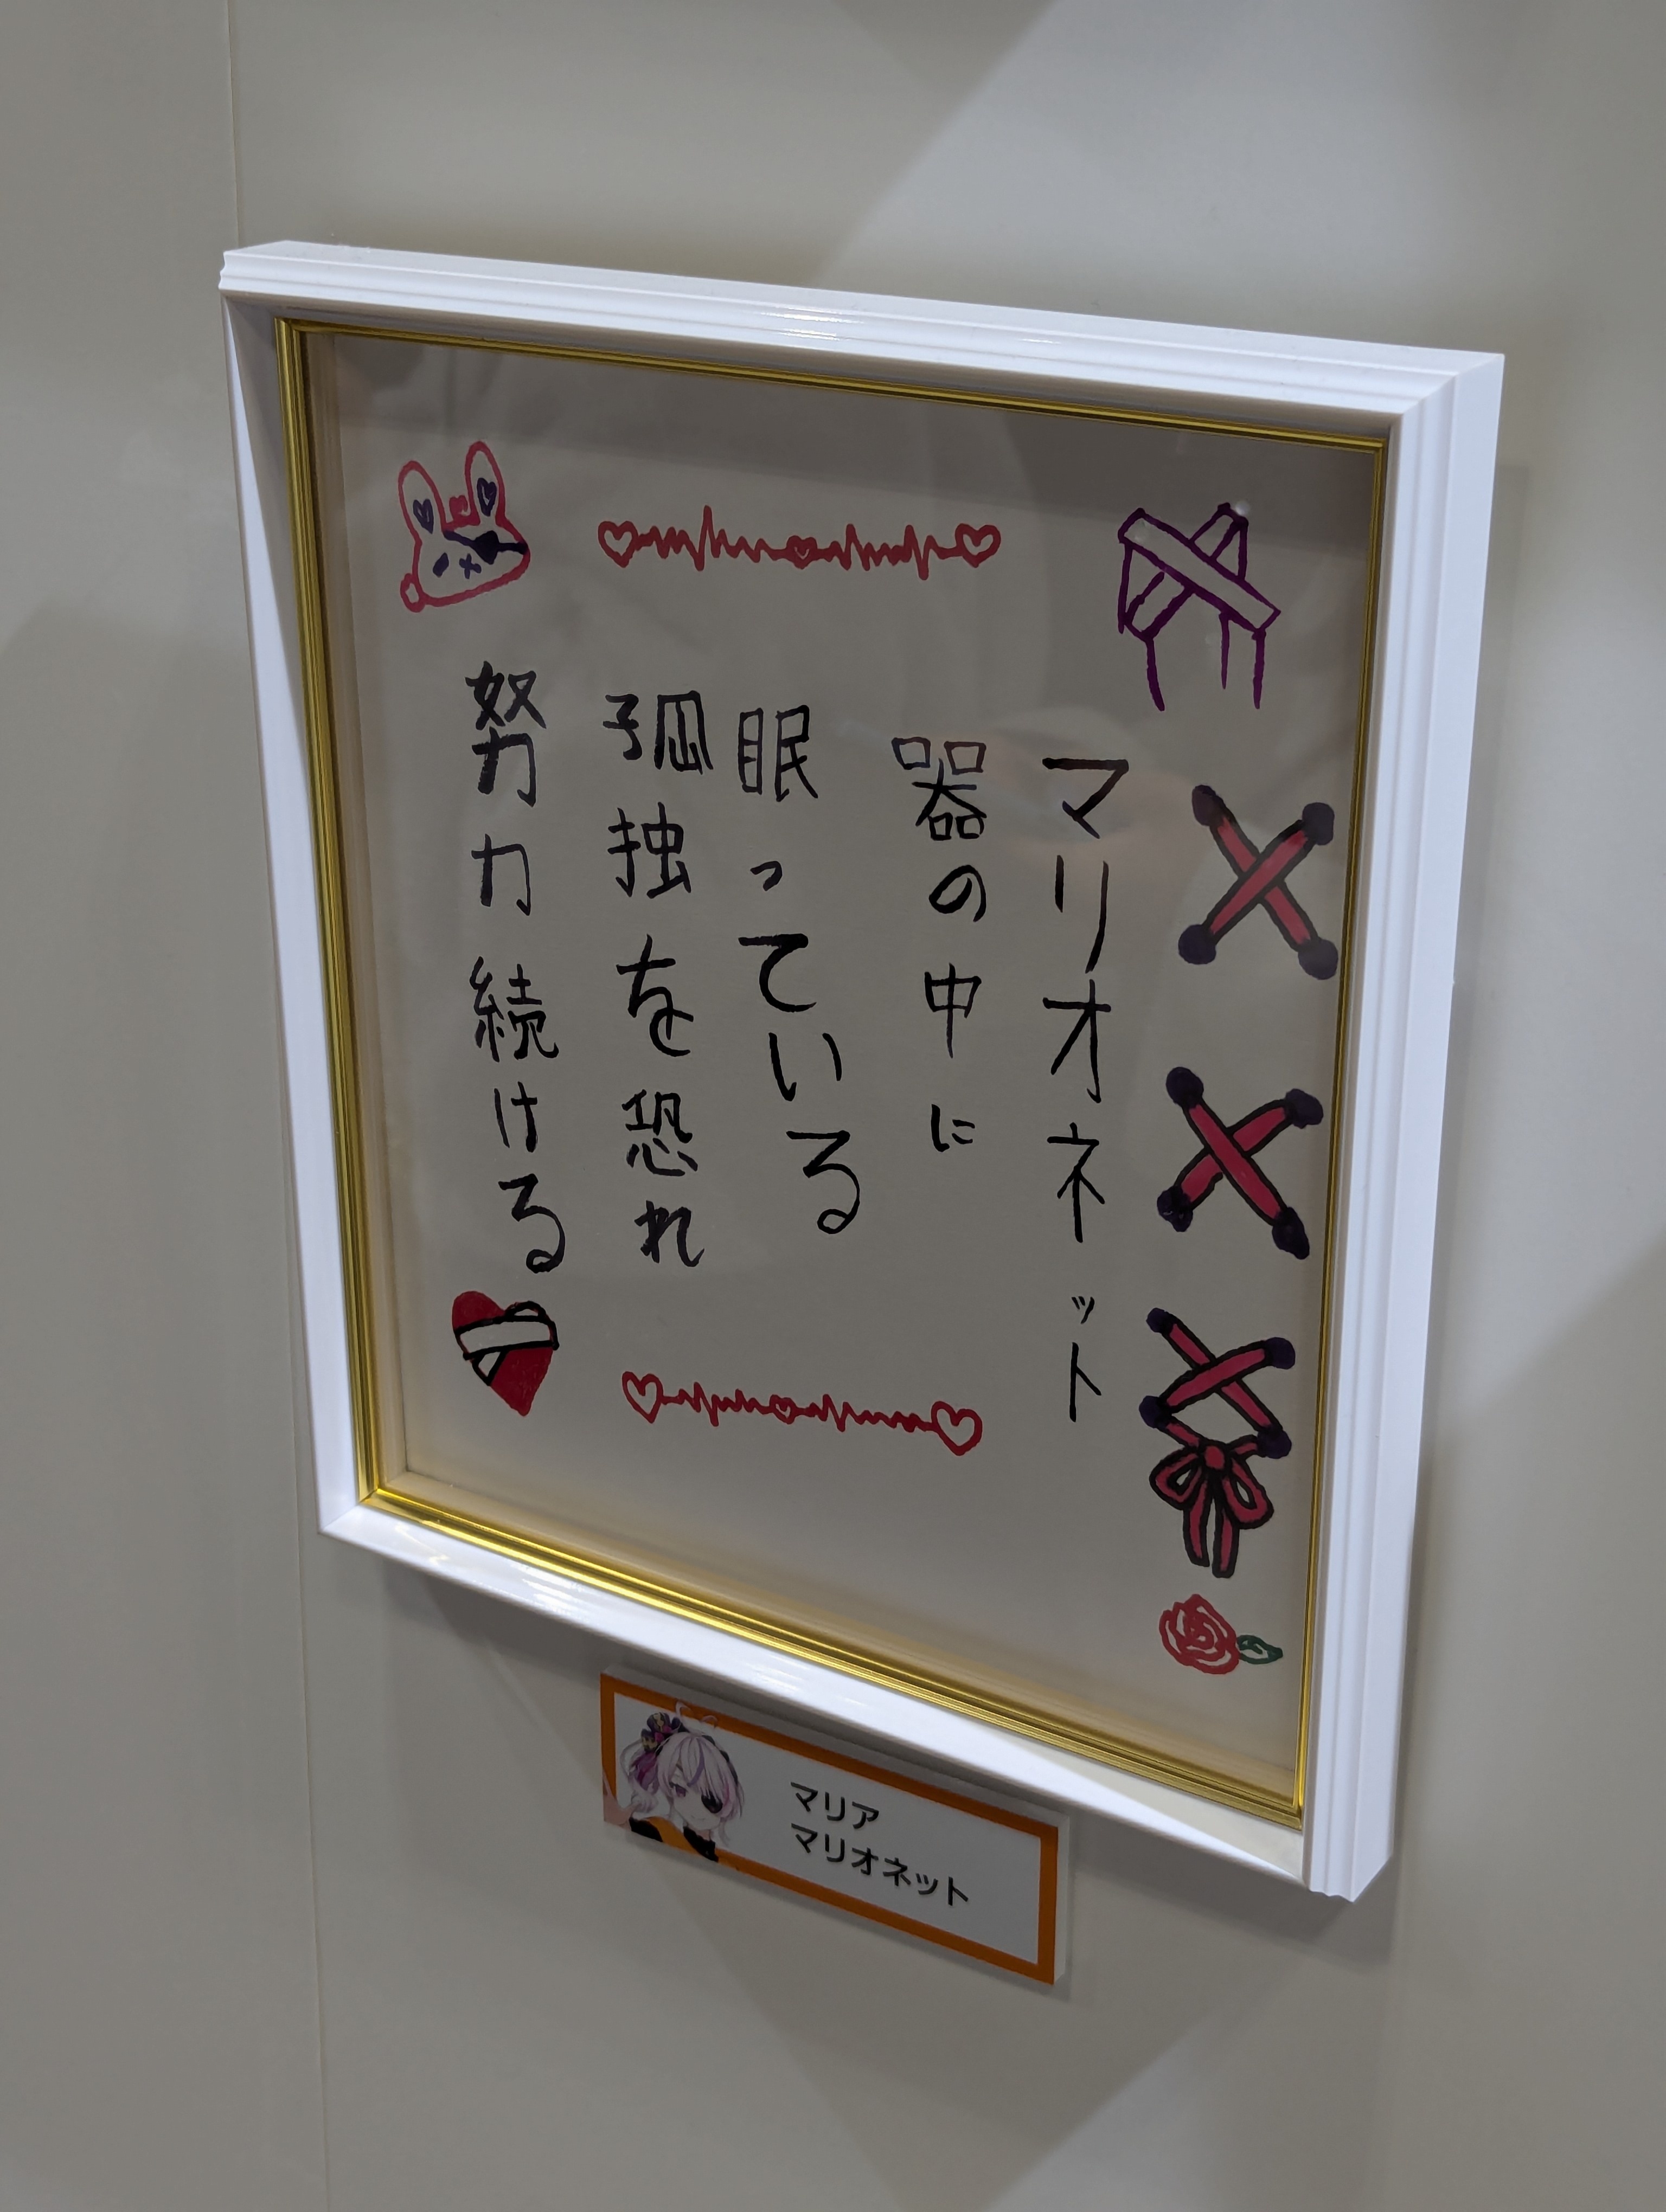 マリオネット
器の中に
眠っている
孤独を恐れ
努力続ける
マリア
マリオネット